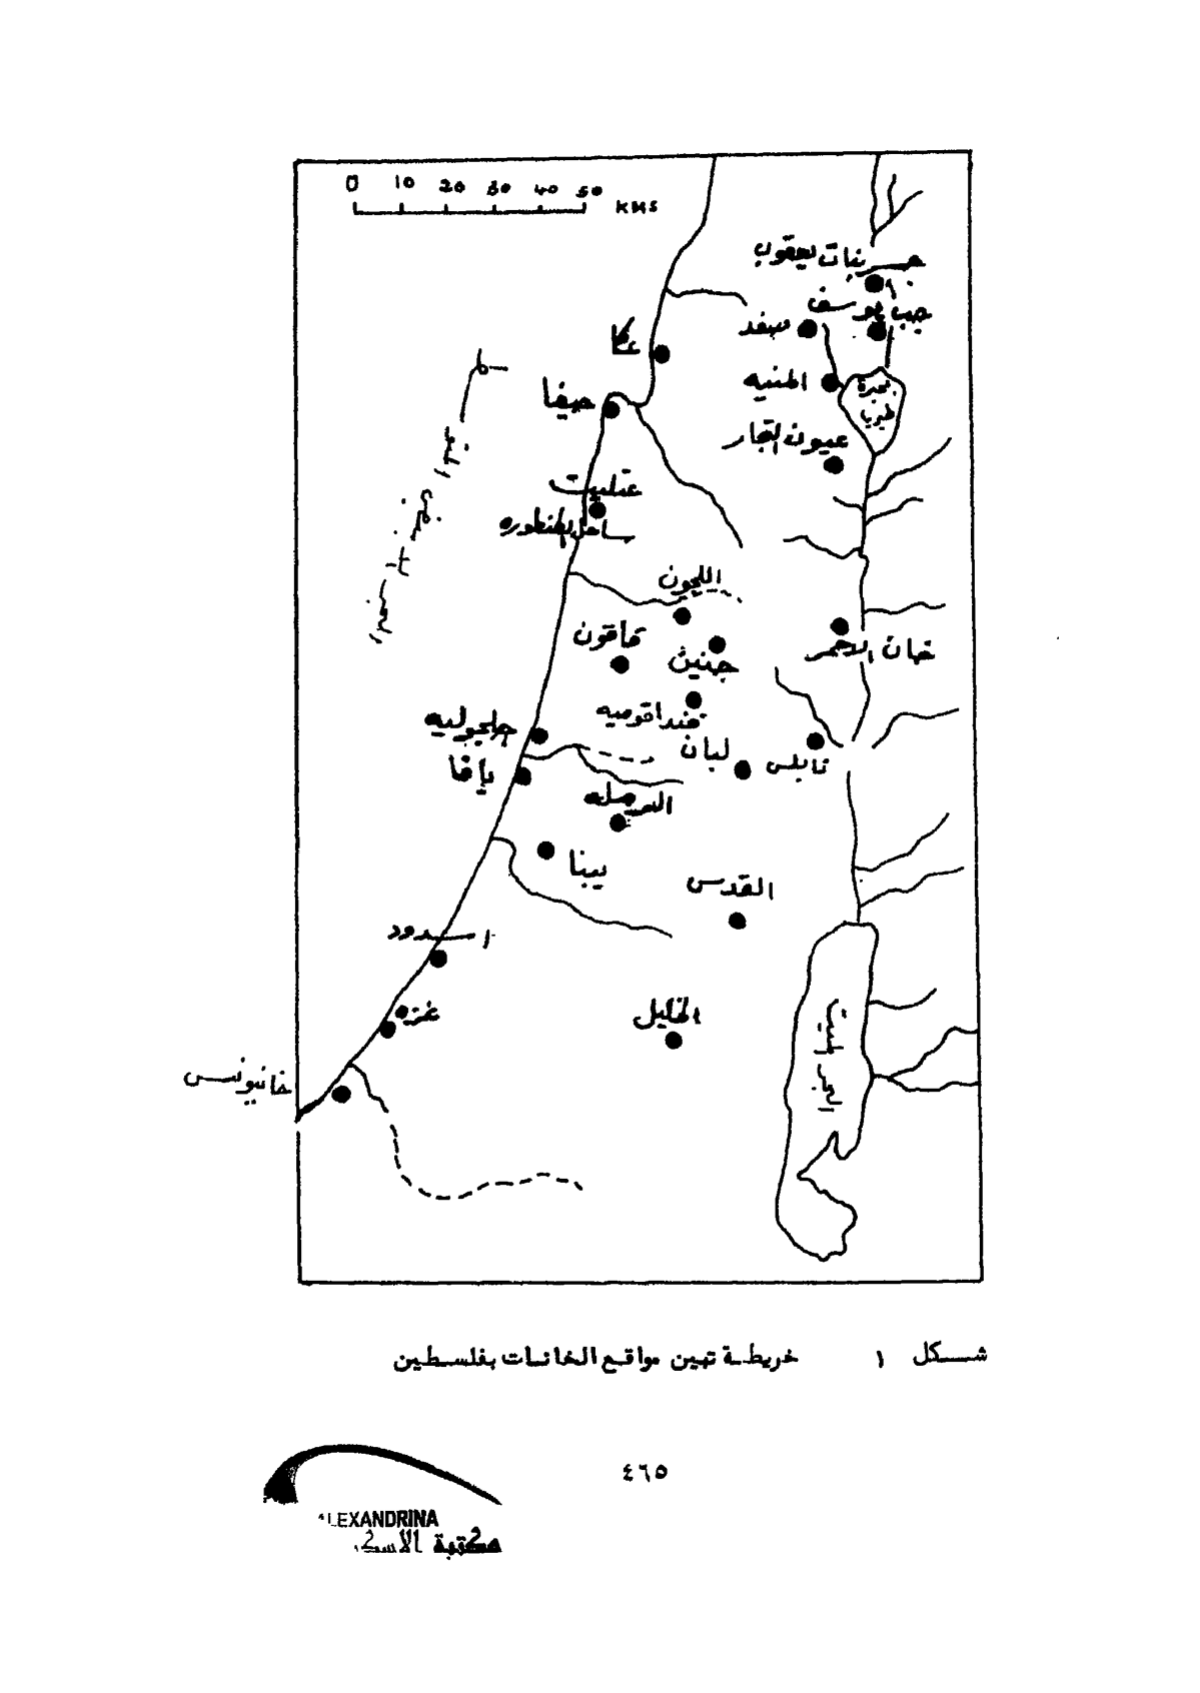 0 10 20 30 40 50 KMS
جسر بنات يعقوب
جب يوسف
صفد
عكا
المنيه
بحيرة
طبريا
حيفا
عيون التجار
عتليت
ساحل الطنطوره
البحر الابيض المتوسط
اللجون
قاقون
جنين
خان الاحمر
جلجوليه
لبان
نابلس
يافا
الرمله
يبنا
القدس
اسدود
غزه
الخليل
خانيونس
البحر الميت
شكل ١ خريطة تبين مواقع الخانات بفلسطين
٤٦٥
LEXANDRINA
مكتبة الاسك